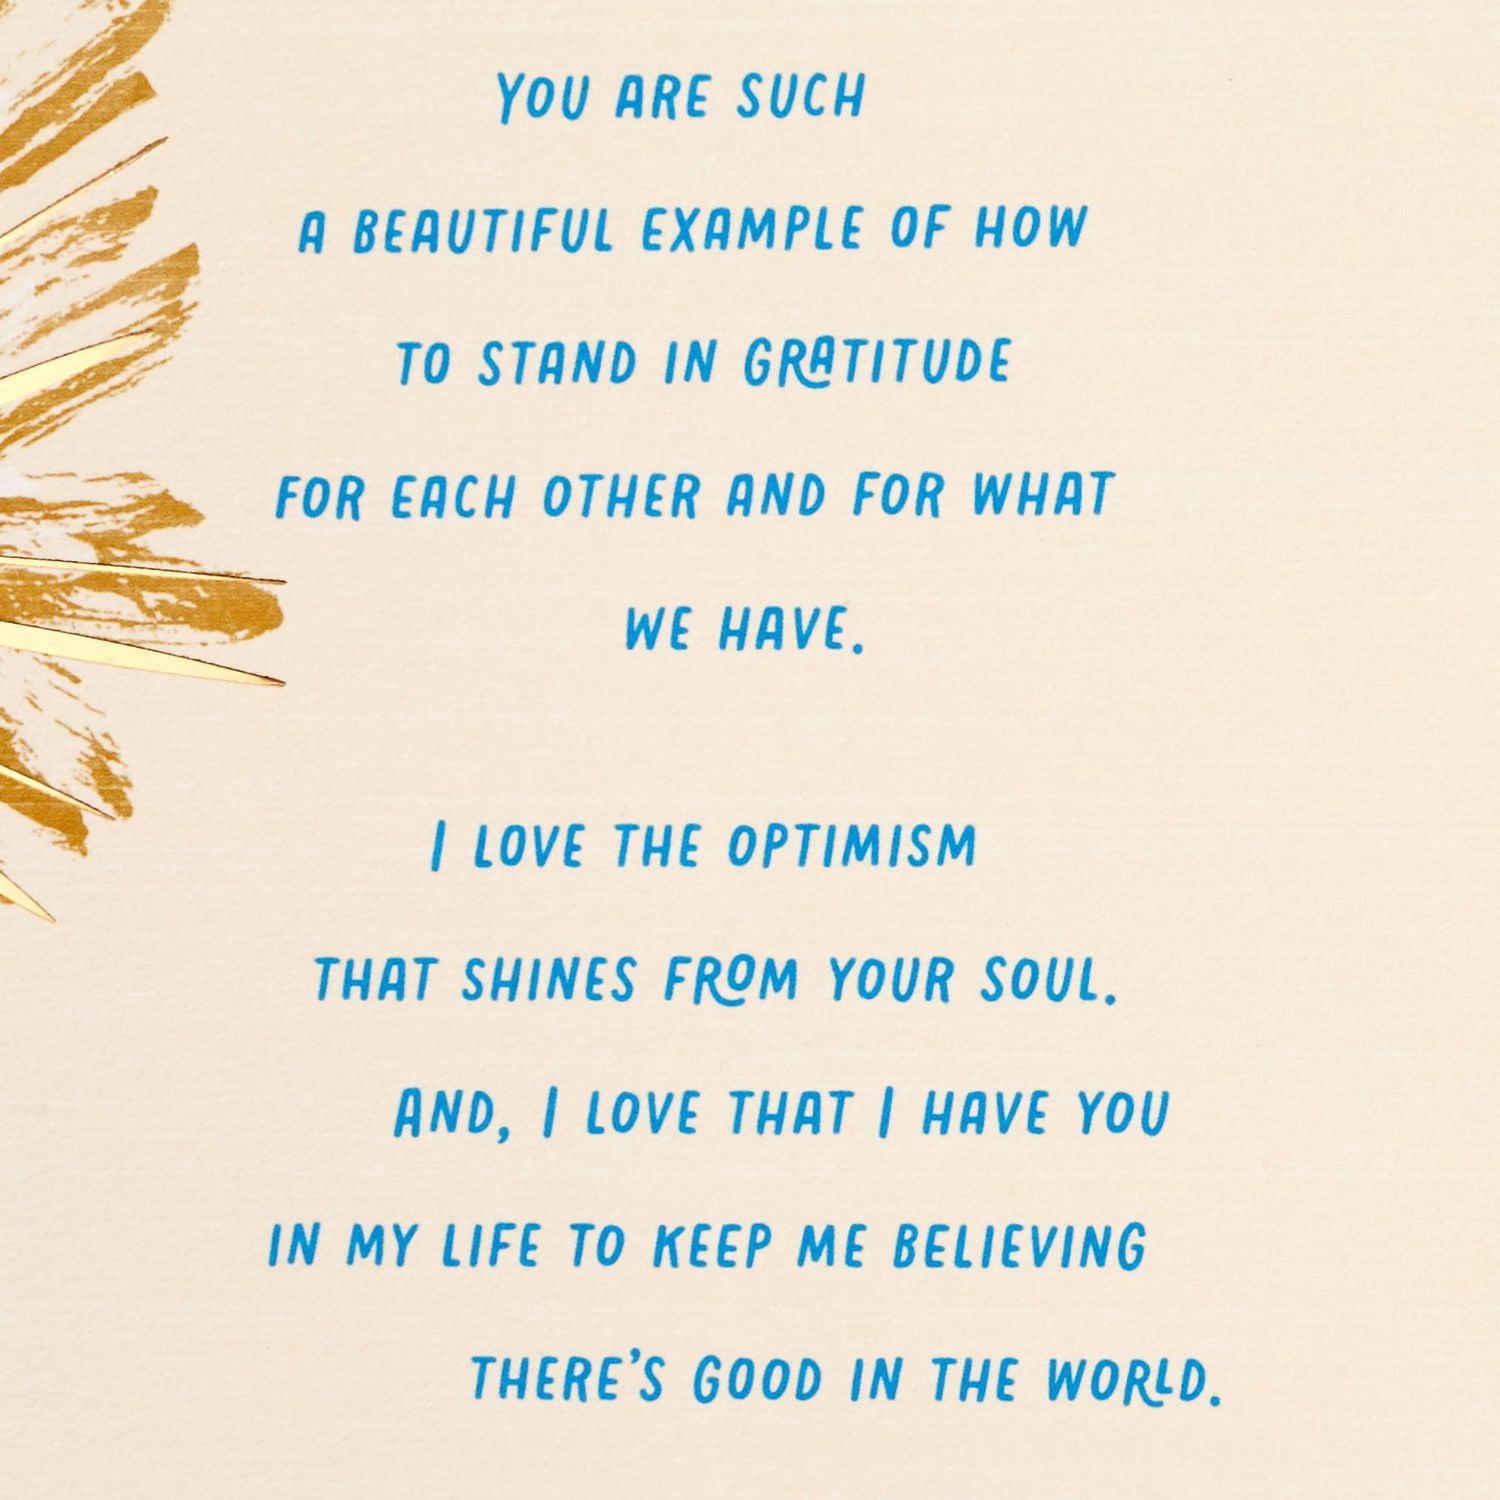 YOU ARE SUCH
A BEAUTIFUL EXAMPLE OF HOW
TO STAND IN GRATITUDE
FOR EACH OTHER AND FOR WHAT
WE HAVE.
I LOVE THE OPTIMISM
THAT SHINES FROM YOUR SOUL.
AND, I LOVE THAT I HAVE YOU
IN MY LIFE TO KEEP ME BELIEVING
THERE'S GOOD IN THE WORLD.